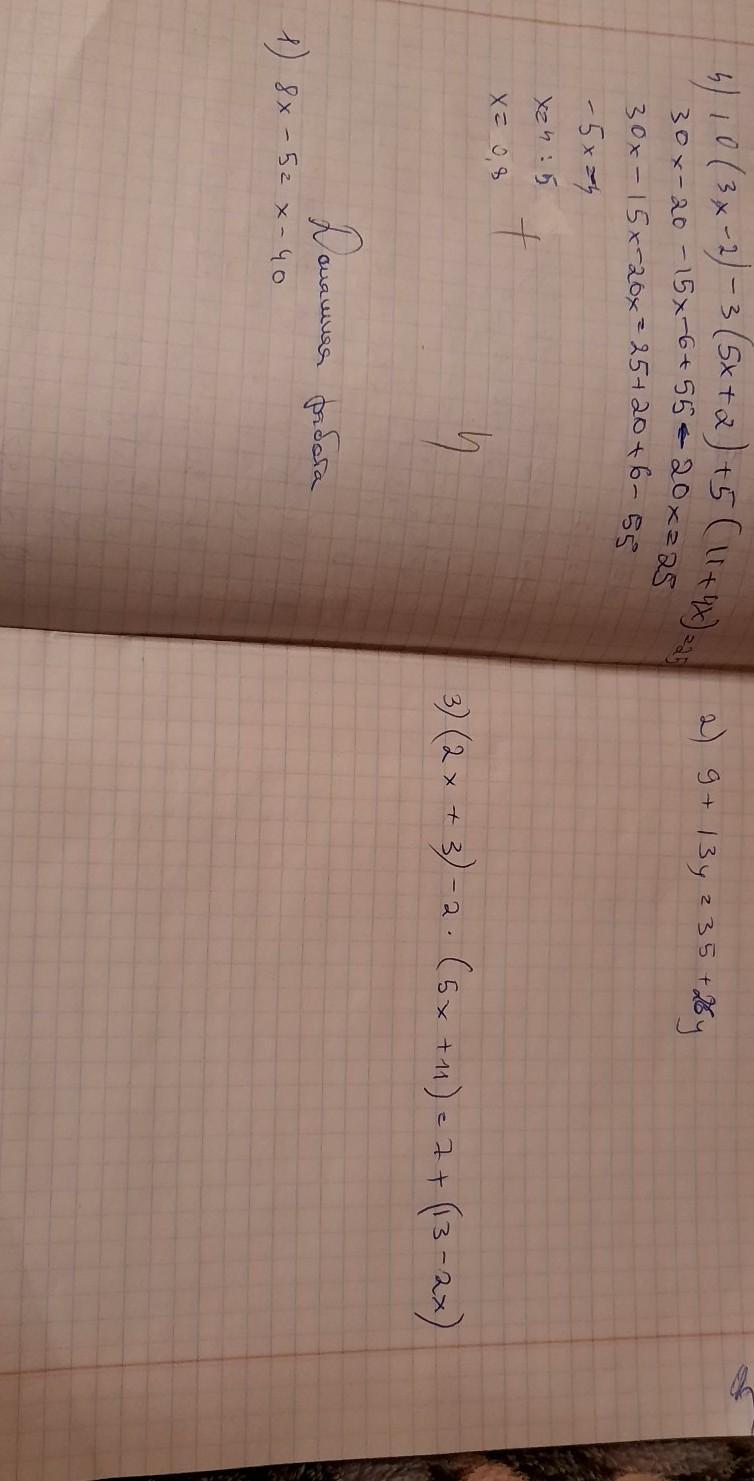 4) 10(3x-2)-3(5x+2)+5(11+4x)=25
30x-20-15x-6+55-20x=25
30x-15x-20x=25+20+6-55
-5x=4
x=4:5
x=0,8
+
4
Домашняя работа
1) 8x-5=x-40
2) 9+13y=35+26y
3) (2x+3)-2·(5x+11)=7+(13-2x)